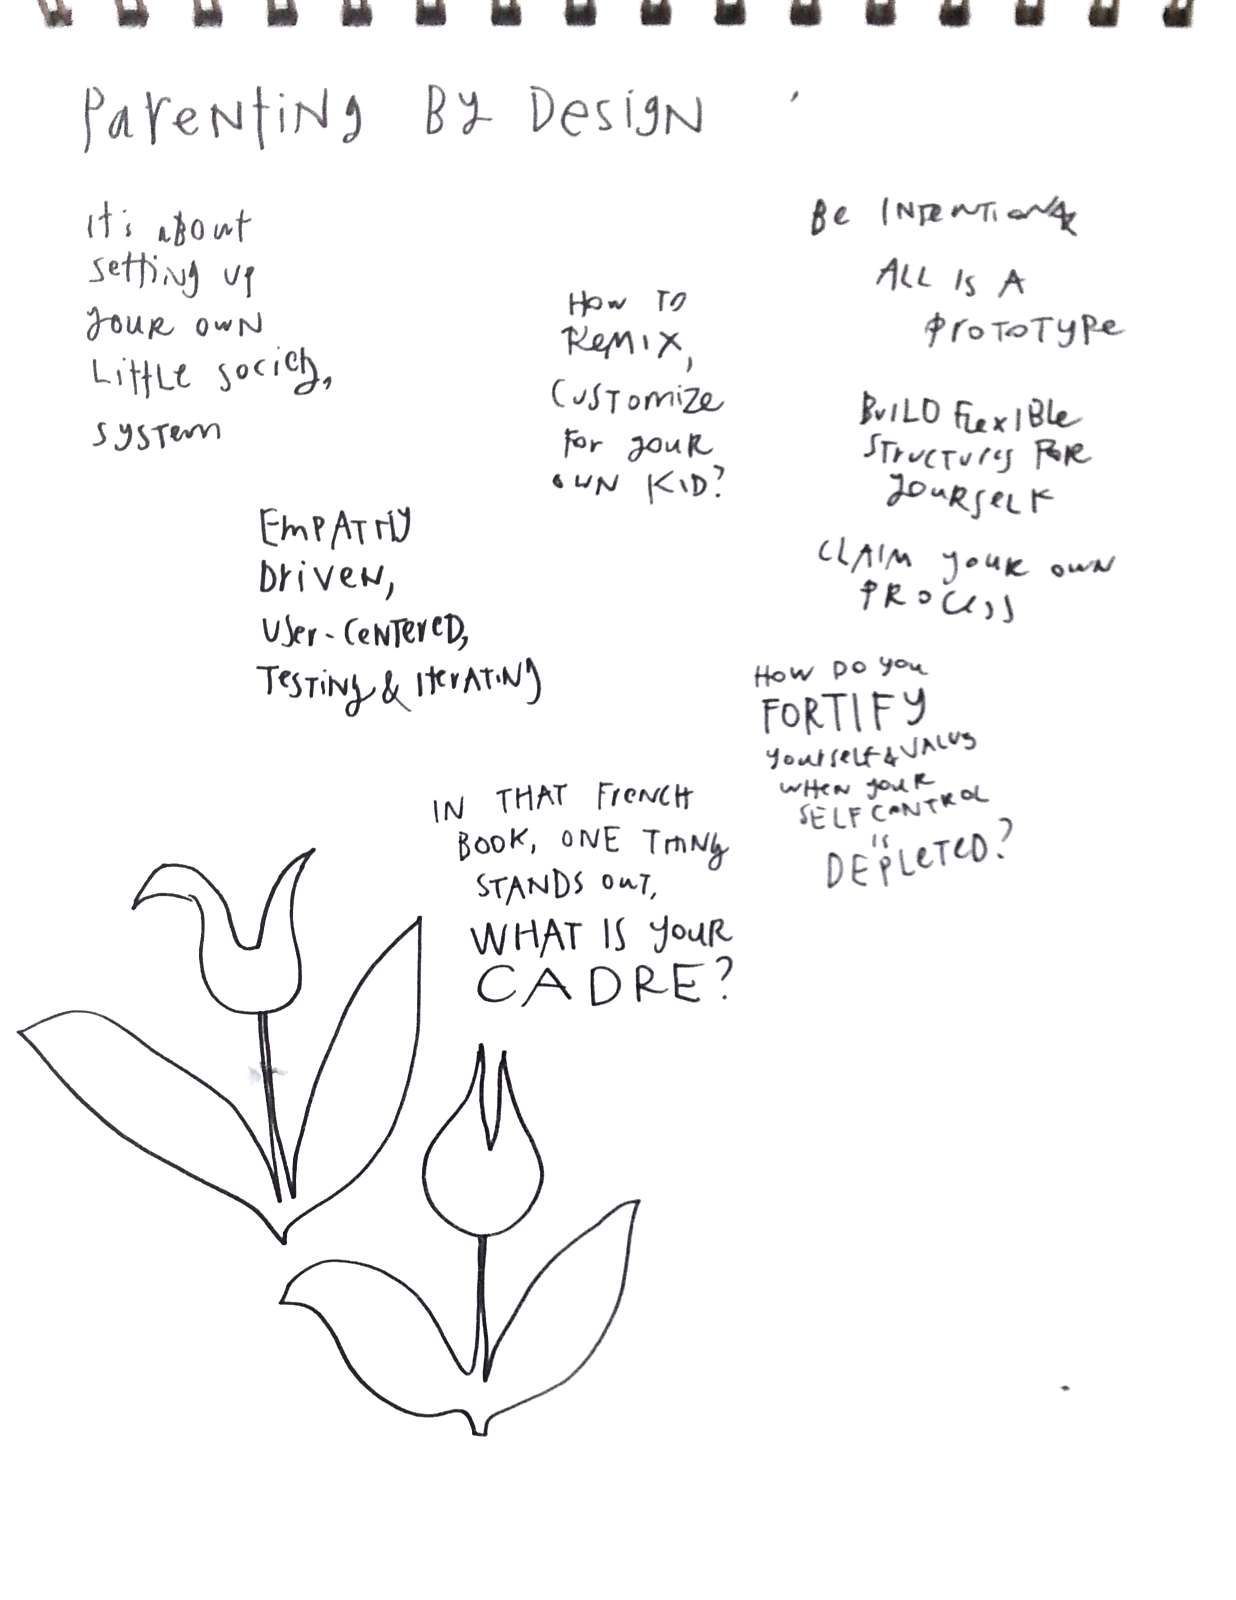 Parenting By Design
It's about
setting up
your own
little society,
system
Empathy
Driven,
User-Centered,
Testing & Iterating
How to
Remix,
Customize
for your
own kid?
Be Intentional
All is a
Prototype
Build flexible
structures for
yourself
Claim your own
process
How do you
FORTIFY
yourself & values
when your
self control
is
DEPLETED?
IN THAT FRENCH
BOOK, ONE THING
STANDS OUT,
WHAT IS YOUR
CADRE?